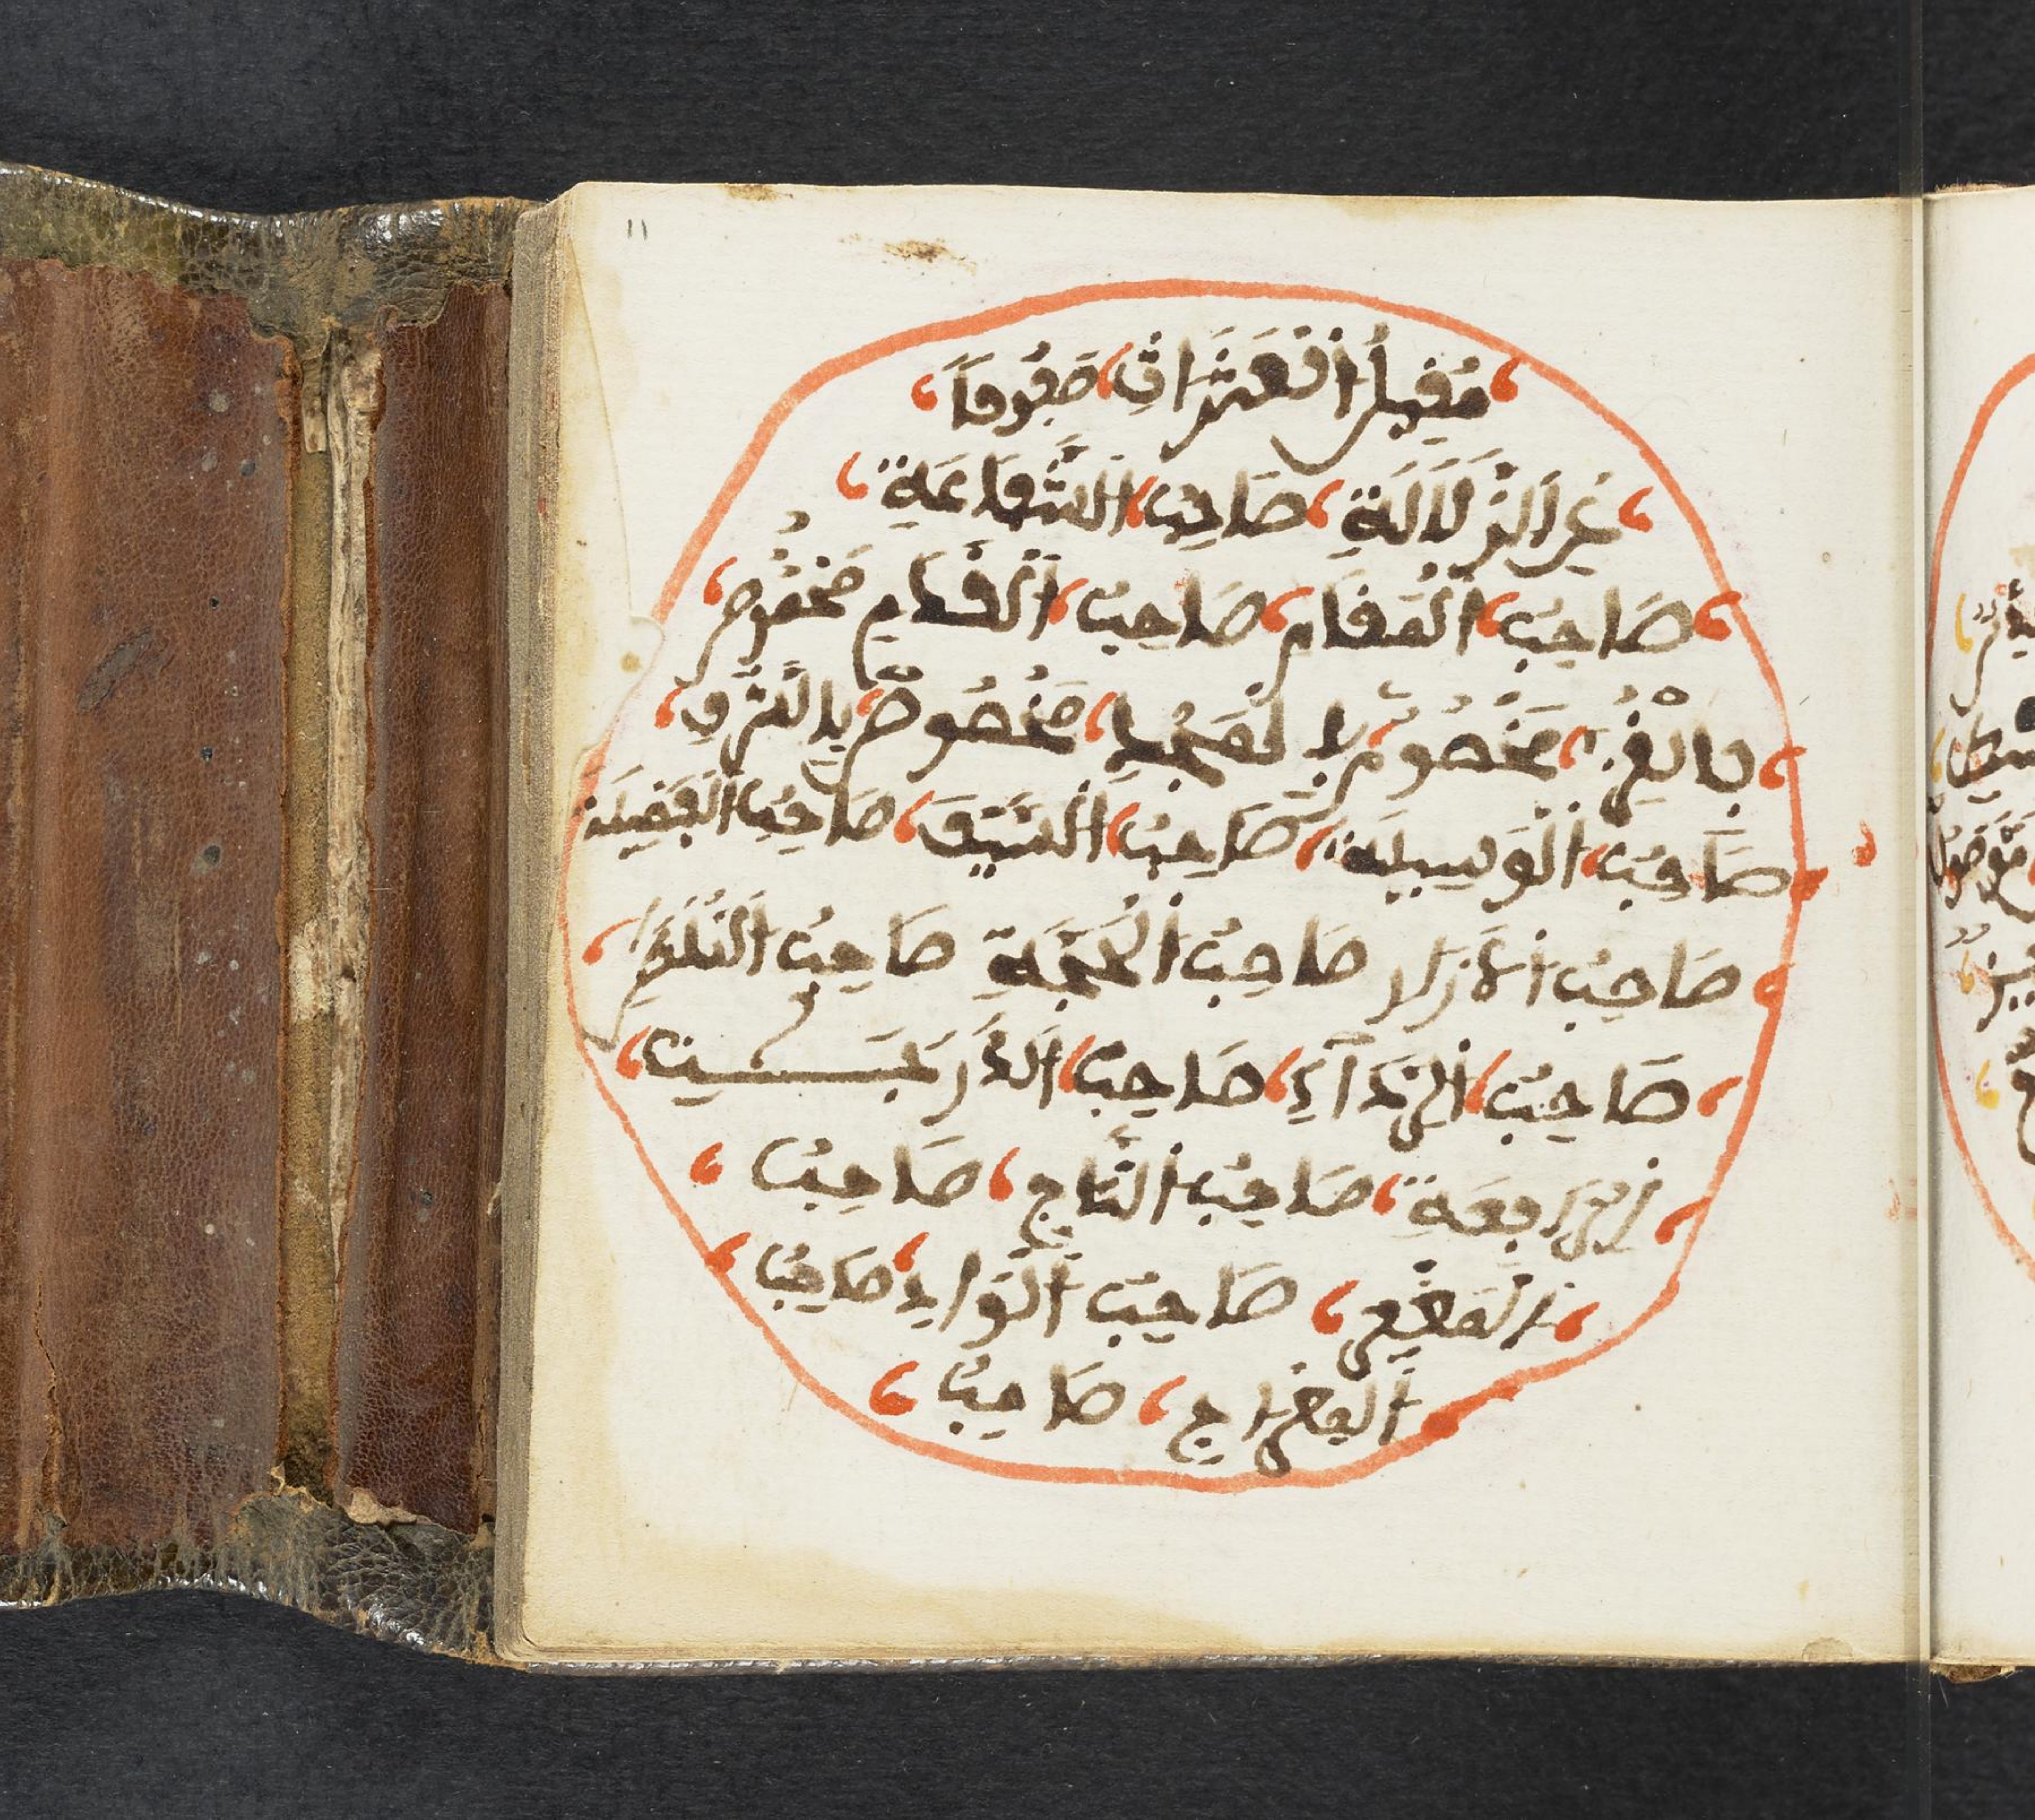 ١١
مُقِيلُ اَلْعَثَرَاتِ صَفُوحًا
عَنِ الزَّلَالَةِ صَاحِبُ الشَّفَاعَةِ
صَاحِبُ الْمَقَامِ صَاحِبُ الْقَدَمِ مَخْصُوصٌ
بِالْعِزِّ مَخْصُوصٌ بِالْمَجْدِ مَخْصُوصٌ بِالشَّرَفِ
صَاحِبُ الْوَسِيلَةِ صَاحِبُ السَّيْفِ صَاحِبُ الْفَضِيلَةِ
صَاحِبُ الْأَزَارِ صَاحِبُ الْحُجَّةِ صَاحِبُ
صَاحِبُ الرِّدَآءِ صَاحِبُ
الرَّفِعَةِ صَاحِبُ التَّاجِ صَاحِبُ
الْمَغْفِرِ صَاحِبُ الْوَاءِ صَاحِبُ
الْمِعْرَاجِ صَاحِبُ